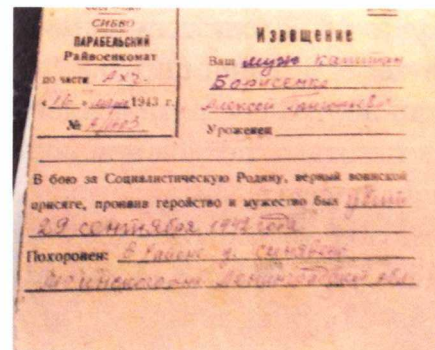 СИБВО
ПАРАБЕЛЬСКИЙ
Райвоенкомат
по части АХЧ
1943 г.
№
Извещение
Ваш муж капитан
Борисенко
Алексей Григорьевич
Уроженец
В бою за Социалистическую Родину, верный воинской
присяге, проявив геройство и мужество был убит
29 сентября 1942 года
Похоронен: В районе д. Синявино
Ленинградской обл